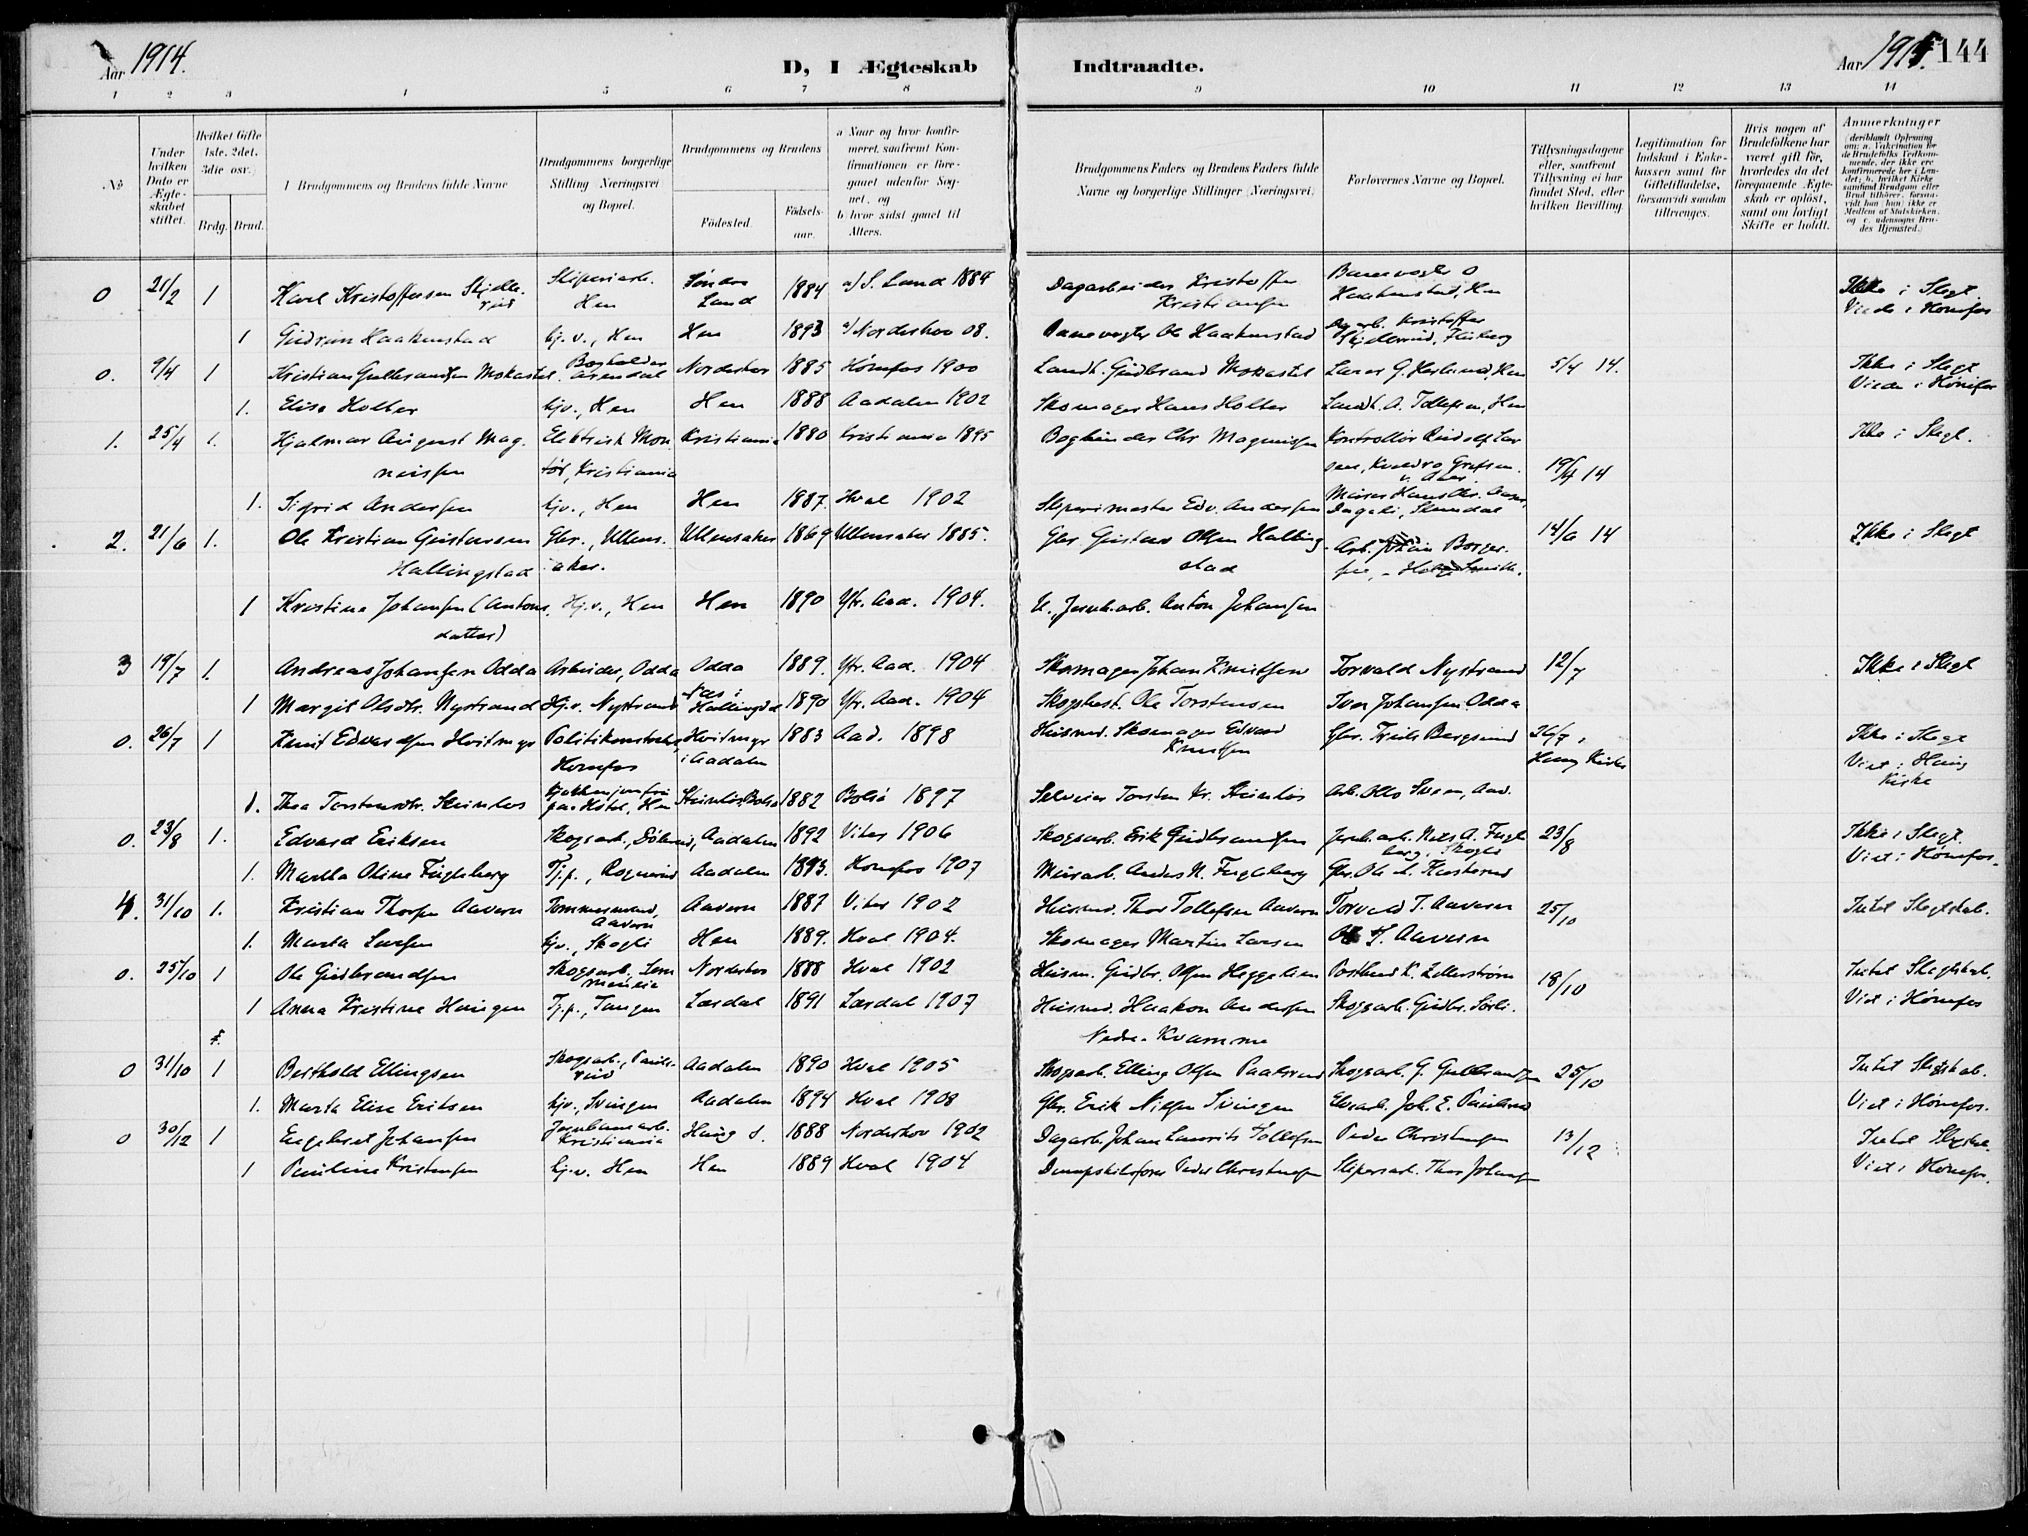 Aar 1914.
D, I Ægteskab Indtraadte.
Aar 1914. 144
1 2 3 4 5 6 7 8 9 10 11 12 13 14
No
Under hvilken Dato er Ægteskabet stiftet.
Hvilket Gifte 1ste, 2det, 3die osv.)
Brdg. Brud.
Brudgommens og Brudens fulde Navne
Brudgommens borgerlige Stilling Næringsvei og Bopæl.
Brudgommens og Brudens
Födested.
Födselsaar.
a Naar og hvor konfirmeret, saafremt Konfirmationen er foregaaet udenfor Sognet, og
b hvor sidst gaaet til Alters.
Brudgommens Faders og Brudens Faders fulde Navne og borgerlige Stillinger (Næringsvei)
Forlovernes Navne og Bopæl.
Tillysningsdagene eller, saafremt Tillysning ei har fundet Sted, efter hvilken Bevilling
Legitimation for Indskud i Enkekassen samt for Giftetilladelse, forsaavidt saadan tiltrænges.
Hvis nogen af Brudefolkene har været gift för, hvorledes da det foregaaende Ægteskab er oplöst, samt om lovligt Skifte er holdt.
Anmerkninger
0 21/2 1 Karl Kristoffersen Skjelle- Sliperiarb. Søndre 1884 a) S. Land 1884 Dagarbeider Kristoffer Banevogter O Ikke i Slegt
rud Hen Land Kristiansen Haakenstad, Hen Viede i Hönefos
1 Gudrun Haakenstad hj.v., Hen Hen 1893 a) Norderhov 08. Banevogter Ole Haakenstad Dagarb. Kristoffer
0. 9/4 1 Kristian Gulbrandsen Mokastet Bogholder Arendal Norderhov 1885 Hönefos 1900 Landh. Gudbrand Mokastet Lars G. Hen 5/4 14. Ikke i Slegt
Viede i Hönefos
1. Elise Holter hjv., Hen Hen 1888 Aadalen 1902 Skomager Hans Holter Landh. A. Tollefsen, Hen
1. 25/4 1. Hjalmar August Mag- Elektrisk Mon- Kristiania 1880 Kristiania 1895 Bogbinder Chr Magnussen Kontrollör Rudolf Lar- Ikke i Slegt.
nussen tör, Kristiania sen, 19/4 14
1. Sigrid Andersen hjv., Hen Hen 1887. Hval 1902 Sliperimester Edv. Andersen Murer Hans Chr.
2. 21/6 1. Ole Kristian Gustavsen Gbr., Ullens- Ullensaker 1869 Ullensaker 1885. Gbr Gustav Olsen Halling- Arb. Johan Borger- 14/6 14 Ikke i Slegt
Hallingstad aker. stad sen, - Smith.
1 Kristine Johansen (Antons Hj.v., Hen Hen 1890 Ytr. Aad. 1904. U. Jernb.arb. Anton Johansen
datter)
3 19/7 1. Andreas Johansen Odda Arbeider, Odda Odda 1889. Ytr. Aad. 1904 Skomager Johan Knutsen Torvald Nystrand 12/7 Ikke i Slegt
1 Margit Olsdtr. Nystrand Hj.v. Nystrand Næs i Hallingdal 1890 Ytr. Aad. 1904 Ole Torstensen Iver Johansen Odda
0. 26/7 1 Knut Edvardsen Hvitmyr Politikonstabel, Hvitmyr 1883 Aad. 1898 Husmd. Skomager Edvard Gbr. Bergsund 26/7 i Ikke i Slegt
Hönefos i Aadalen Knutsen Haug Kirke Viet i Haug Kirke
1. Thea Torstensdtr. Steinløs Kjøkkenjomfru paa Hotel, Hen Steinløs, Bolsö 1882 Bolsö 1897 Selveier Torsten Kr. Steinløs Arb. Otto Sveen, Aad.
0. 23/8 1. Edvard Eriksen Skogsarb., Aadalen 1892 Viker 1906 Skogsarb. Erik Gudbrandsen Jernb.arb. Nils A. Fugle- 23/8 Ikke i Slegt.
berg, Skogli Viet i Hönefos.
1. Martha Oline Fugleberg Tj.p., Rognerud Aadalen 1893. Hönefos 1907 Murarb. Anders N. Fugleberg Gbr. Ole L. Kasterud
4. 31/10 1. Kristian Thorsen Aavern Tømmermand, Aavern Aavern 1887 Viker 1902 Husmd. Thor Tollefsen Aavern Torvald T. Aavern 25/10 Intet Slegtskab.
1. Marta Larsen hjv., Skogli Hen 1889. Hval 1904. Skomager Martin Larsen Ole T. Aavern
0. 25/10 1 Ole Gudbrandsen Skogsarb., Norderhov 1888 Hval 1902 Husm. Gudbr. Olsen Heggelien Postbud K. Zetterstrøm 18/10 Intet Slegtskab.
1 Anna Kristine Haugen Tj.p., Tangen Lærdal 1891 Lærdal 1907 Husmd. Haakon Andersen Skogsarb. Gudbr. Viet i Hönefos
Nedre-Kvamme
0 31/10 1 Berthold Ellingsen Skogsarb., Pauls- rud Aadalen 1890 Hval 1905 Skogsarb. Elling Olsen Paulsrud Skogsarb. G. Gulbrandsen 25/10 Intet Slegtskab.
1. Marta Elise Eriksen hjv., Svingen Aadalen 1894 Hval 1908 Gbr. Erik Nilsen Svingen Elvearb. Joh. E. Paulsrud Viet i Hönefos.
0 30/12 1 Engebret Johansen Jernbanearb. Kristiania Haug S. 1888 Norderhov 1902 Dagarb. Johan Laurits Tollefsen Peder Christensen 13/12 Intet Slegtskab.
1 Pauline Kristensen hj.v. Hen Hen 1889 Hval 1904 Dampskibsfører Peder Christensen Sliperiarb. Thor Johansen Viet i Hönefos.